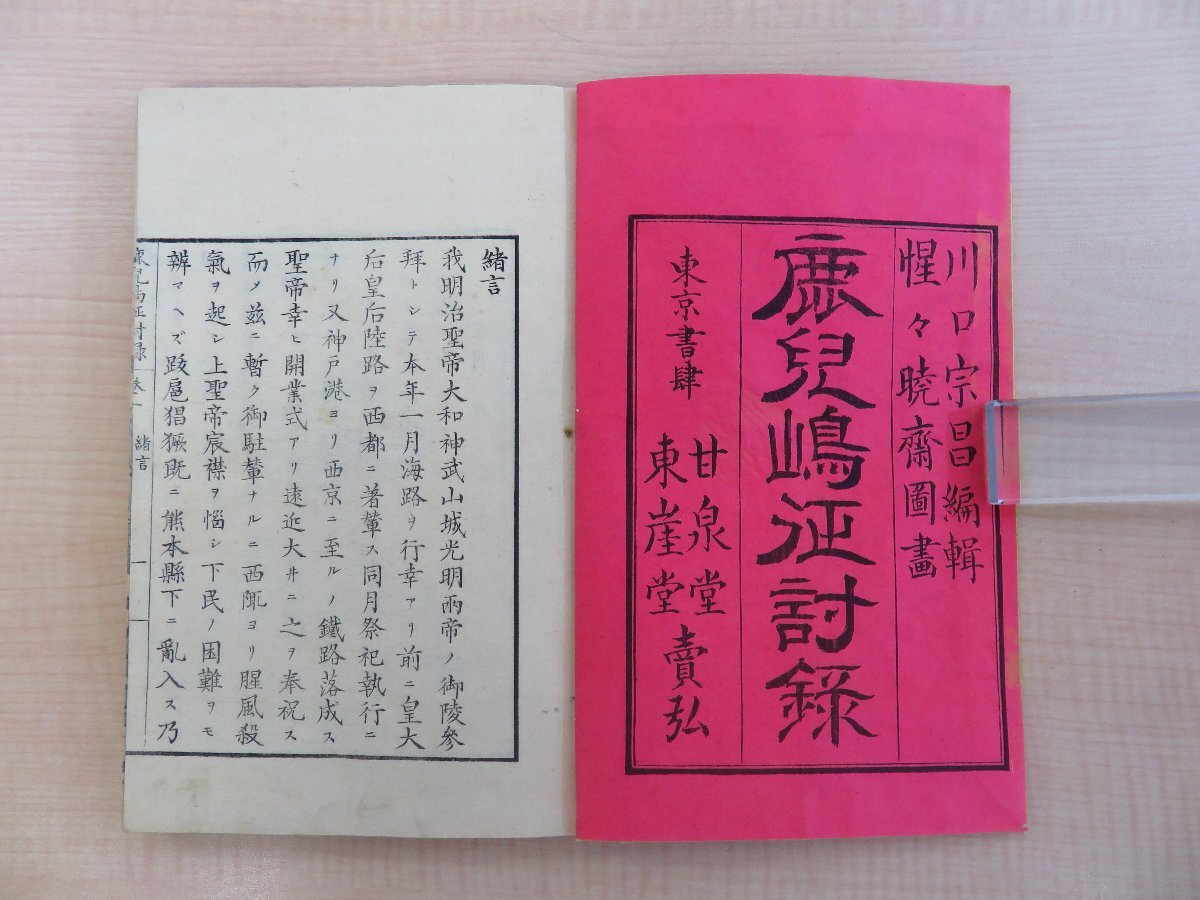 川口宗昌編輯
惺々暁齋圖畫
鹿兒嶋征討録
東京書肆
甘泉堂
東崖堂
賣弘
緒言
我明治聖帝大和神武山城光明兩帝ノ御陵參
拜トシテ本年一月海路ヲ行幸アリ前ニ皇大
后皇后陸路ヲ西都ニ著輦ス同月祭祀執行ニ
ナリ又神戸港ヨリ西京ニ至ルノ鐵路落成ス
聖帝幸ヒ開業式アリ遠近大ヰニ之ヲ奉祝ス
而ノ玆ニ暫ク御駐輦ナルニ西陬ヨリ腥風殺
氣ヲ起シ上聖帝宸襟ヲ惱シ下民ノ困難ヲモ
辨マヘズ跋扈猖獗既ニ熊本縣下ニ亂入ス乃
鹿兒島征討録 卷一 緒言 一